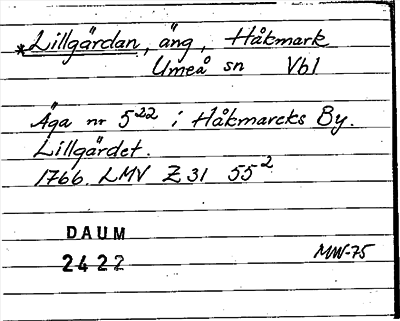 *Lillgärdan, äng, Håkmark
Umeå sn Vbl
Äga nr 5²² i Håkmarcks By.
Lillgärdet.
1766. LMV Z 31 55²
DAUM
2422
MW-75